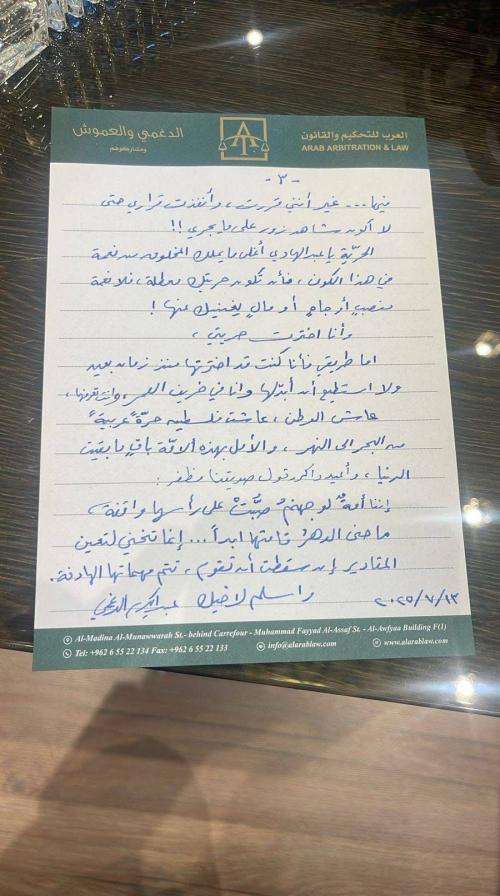 الدغمي والعموش
ومشاركوهم
العرب للتحكيم والقانون
ARAB ARBITRATION & LAW
-٣-
فيها... غير أنني قررت، وأنفذت قراري حتى
لا أكون شاهد زور على ما يجري !!
الحريّة يا عبدالهادي أغلى ما يملك المخلوق من نعمة
في هذا الكون، فأن تكون حريتك معطلة، فلا نعمة
منصبٍ أو جاهٍ أو مالٍ يُغنيك عنها !
وأنا اخترت حريتي،
اما طريقي فأنا كنت قد اخترتها منذ زمان بعيد
ولا استطيع أن أبدّلها وانا في خريف العمر، وانت تعرفها،
عاش الوطن، عاشت فلسطين حرّةً عربيةً
من البحر الى النهر، والأمل بهذه الامّة باقٍ ما بقيت
الدنيا، وأعيد واكرر قول صديقنا مظفر :
إننا أمةٌ لو جهنمُ صُبَّتْ على رأسها واقفة
ما حنى الدهرُ قامتها ابداً... إنما تنحني لتعين
المقادير إن سقطت أن تقوم، تتم مهماتها الهادفة.
واسلم لاخيك عبدالكريم الدغمي
٢٠٢٥/٧/١٣
Al-Madina Al-Munawwarah St.- behind Carrefour - Muhammad Fayyad Al-Assaf St. - Al-Awfyaa Building F(1)
Tel: +962 6 55 22 134 Fax: +962 6 55 22 133
info@alarablaw.com
www.alarablaw.com